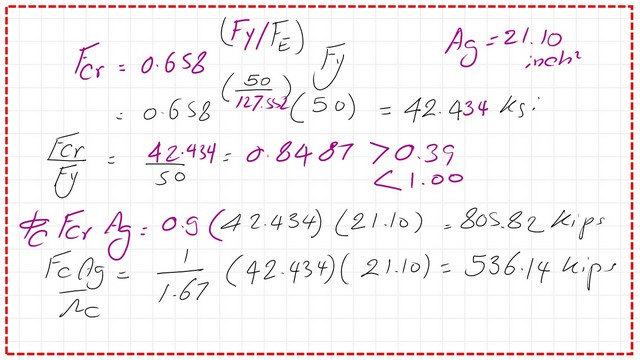 Fcr = 0.658 (Fy/FE) Fy
Ag = 21.10 inch²
= 0.658 (50/127.552) (50) = 42.434 ksi
Fcr/Fy = 42.434/50 = 0.8487 > 0.39
< 1.00
Φc Fcr Ag = 0.9 (42.434) (21.10) = 805.82 kips
Fc Ag/Ωc = 1/1.67 (42.434) (21.10) = 536.14 kips